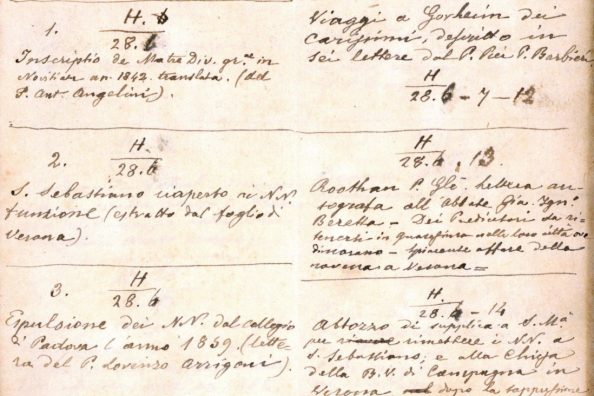 1. H. 6
28. 6
Inscriptio de Matre Div. gr. in
Novitiatu an. 1842. translata. (del
P. Ant. Angelini).
2. H.
28. 6
S. Sebastiano riaperto ai NN.
funzione (estratto dal foglio di
Verona).
3. H
28. 6
Espulsione dei NN. dal collegio
di Padova l'anno 1859 (lette-
ra del P. Lorenzo Arrigoni).
Viaggi a Gorheim dei
Carissimi, descritto in
sei lettere dal P. Pier P. Barbieri
H
28. 6 - 7 - 12
H
28. 6. 13.
Roothan P. Gle. Lettera au-
tografa all' Abbate Gia. Ign.
Beretta - Dei Predicatori da ri-
tenersi in quaresima nelle loro città ove
dimorano - spinente affare della
novena a Verona =
H.
28. 6 - 14
Abbozzo di supplica a S. Mà
per rimettere i NN. a
S. Sebastiano; e alla Chiesa
della B. V. di Campagna in
Verona dopo la soppressione